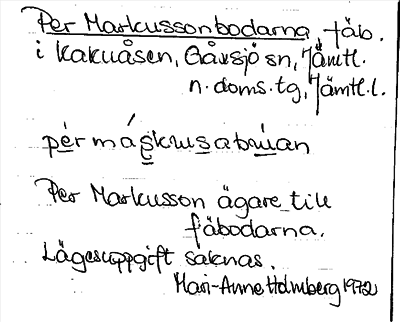 Per Markussonbodarna, fäb.
i Kakuåsen, Gåxsjö sn, Jämtl.
n. doms. tg, Jämtl. l.
pèr máskusabuan
Per Markusson ägare till
fäbodarna.
Lägesuppgift saknas.
Mari-Anne Holmberg 1972